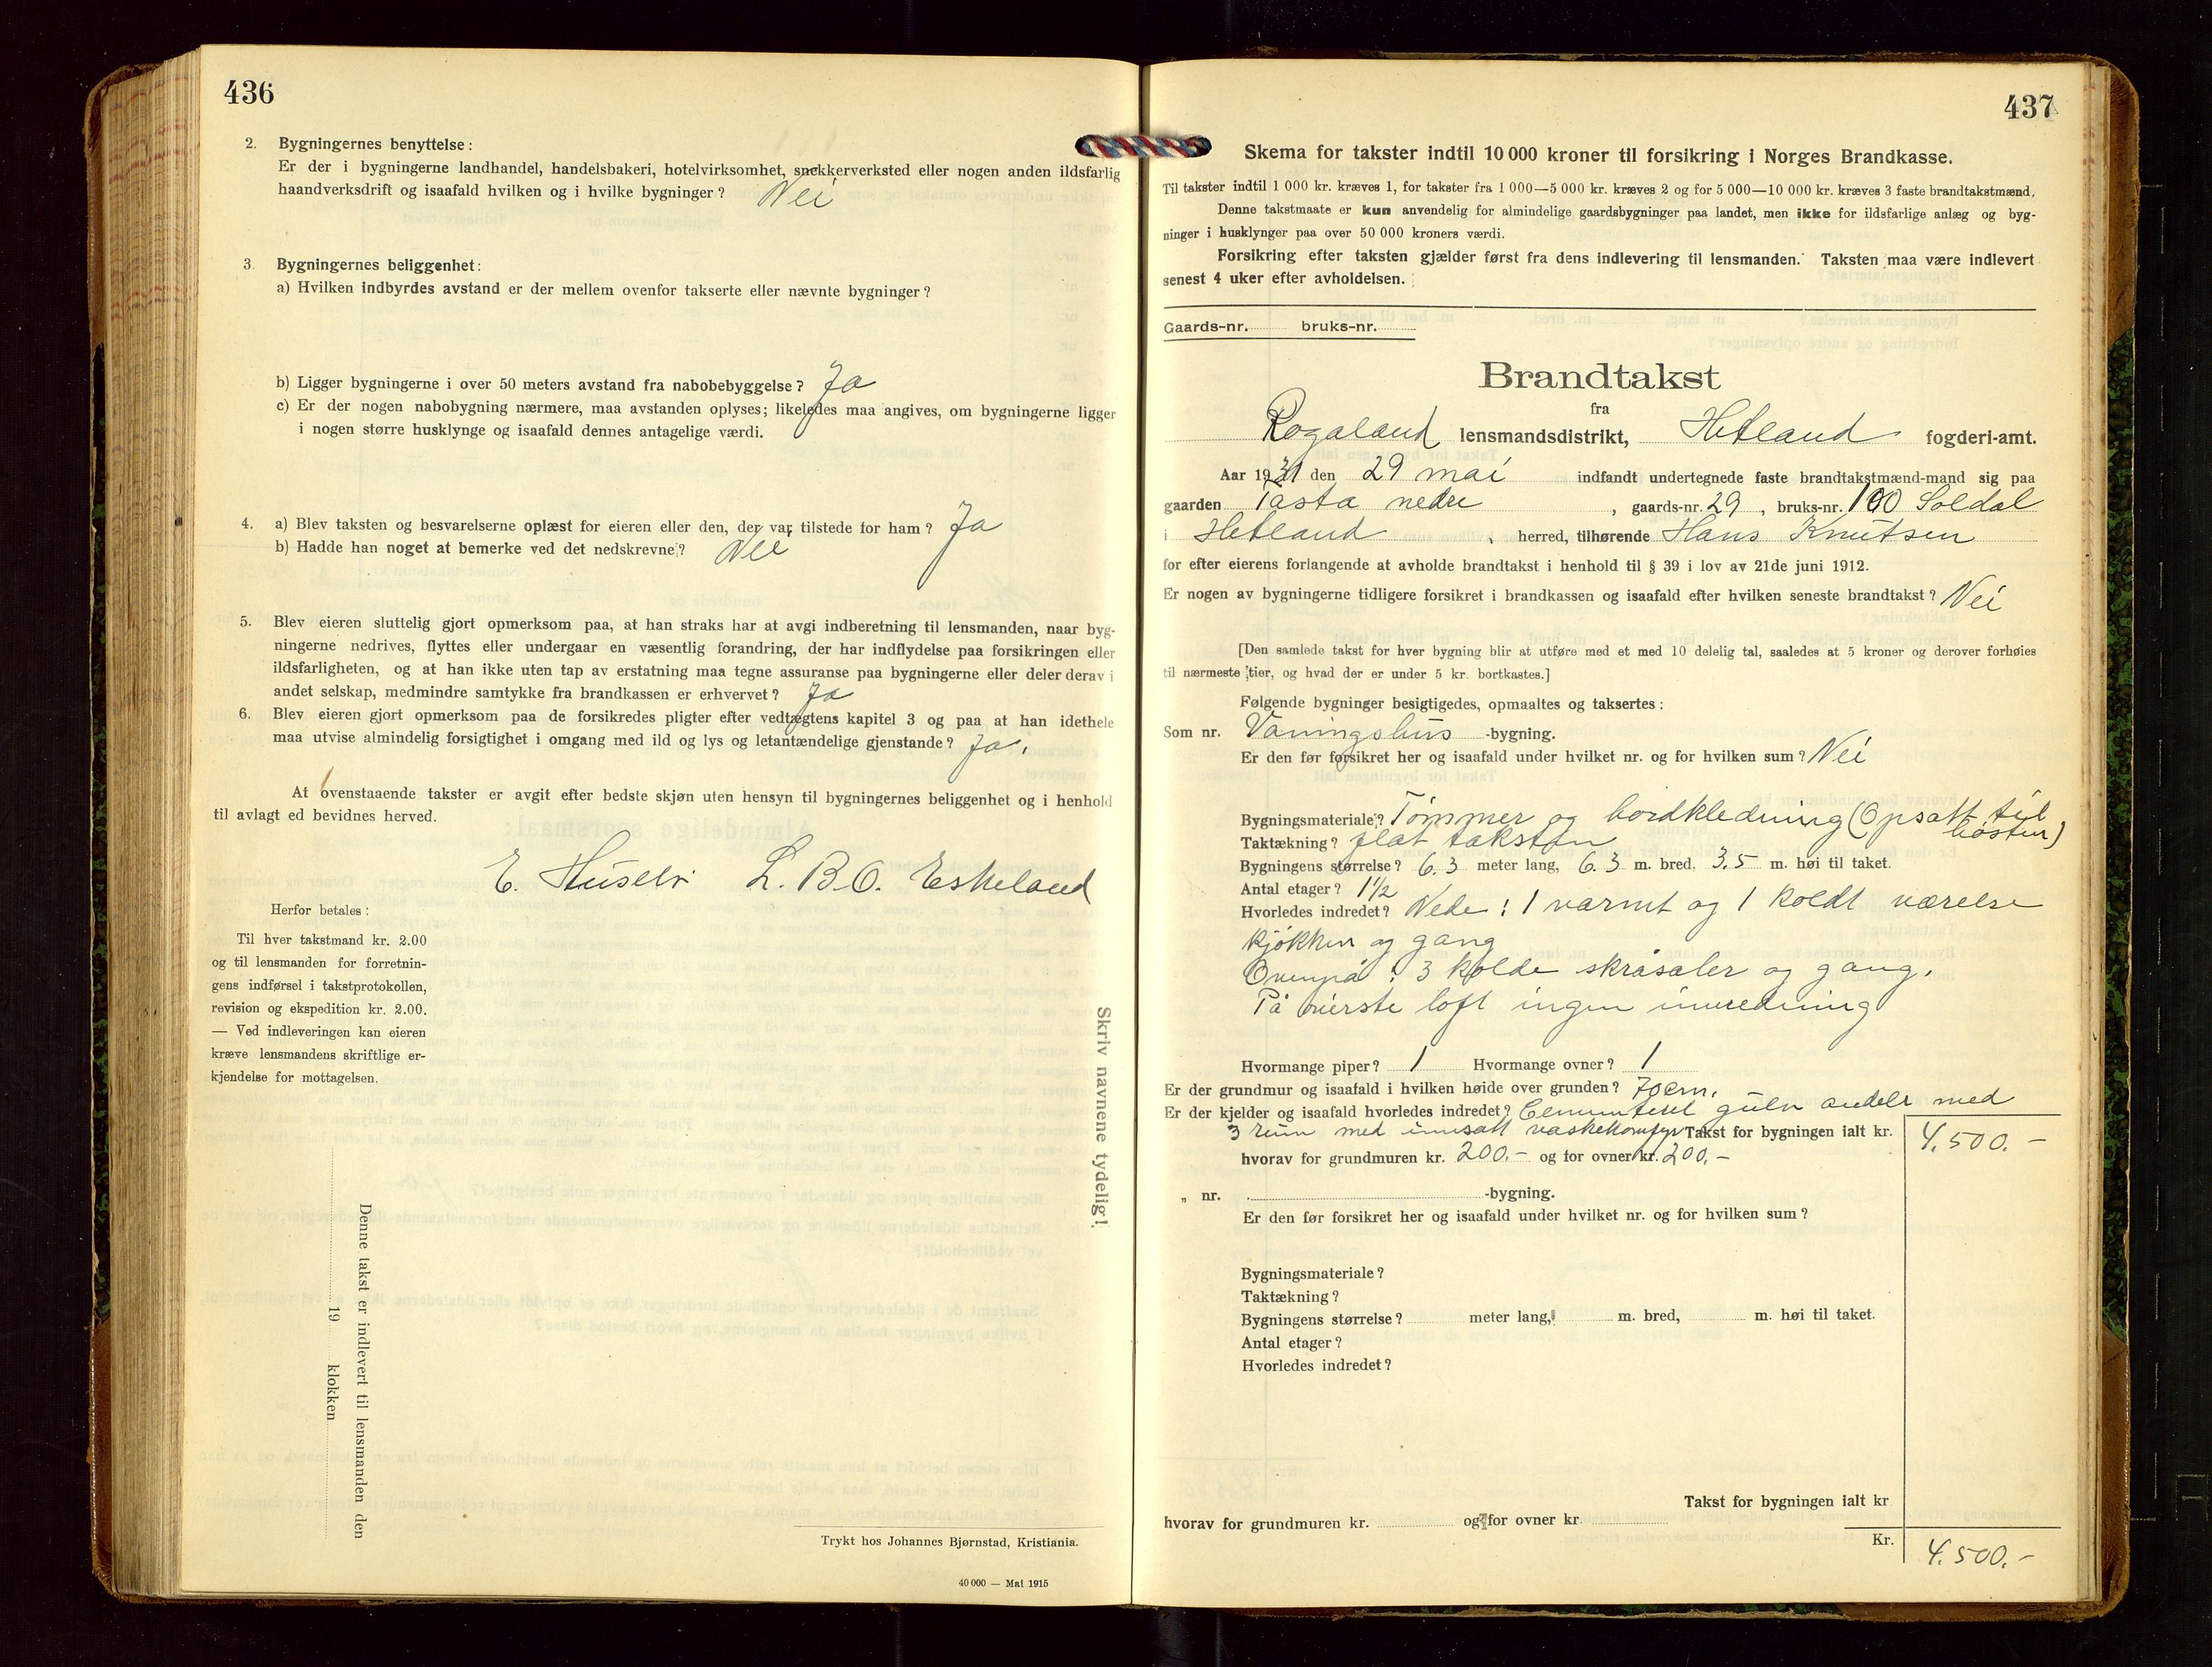 436
2. Bygningernes benyttelse:
Er der i bygningerne landhandel, handelsbakeri, hotelvirksomhet, snekkerverksted eller nogen anden ildsfarlig
haandverksdrift og isaafald hvilken og i hvilke bygninger? Nei
3. Bygningernes beliggenhet:
a) Hvilken indbyrdes avstand er der mellem ovenfor takserte eller nævnte bygninger?
b) Ligger bygningerne i over 50 meters avstand fra nabobebyggelse? Ja
c) Er der nogen nabobygning nærmere, maa avstanden oplyses; likeledes maa angives, om bygningerne ligger
i nogen større husklynge og isaafald dennes antagelige værdi.
4. a) Blev taksten og besvarelserne oplæst for eieren eller den, der var tilstede for ham? Ja
b) Hadde han noget at bemerke ved det nedskrevne? Nei
5. Blev eieren sluttelig gjort opmerksom paa, at han straks har at avgi indberetning til lensmanden, naar byg-
ningerne nedrives, flyttes eller undergaar en væsentlig forandring, der har indflydelse paa forsikringen eller
ildsfarligheten, og at han ikke uten tap av erstatning maa tegne assuranse paa bygningerne eller deler derav i
andet selskap, medmindre samtykke fra brandkassen er erhvervet? Ja
6. Blev eieren gjort opmerksom paa de forsikredes pligter efter vedtægtens kapitel 3 og paa at han idethele
maa utvise almindelig forsigtighet i omgang med ild og lys og letantændelige gjenstande? Ja.
At ovenstaaende takster er avgit efter bedste skjøn uten hensyn til bygningernes beliggenhet og i henhold
til avlagt ed bevidnes herved.
E. L. B. O. Eskeland
Herfor betales:
Til hver takstmand kr. 2.00
og til lensmanden for forretnin-
gens indførsel i takstprotokollen,
revision og ekspedition kr. 2.00.
— Ved indleveringen kan eieren
kræve lensmandens skriftlige er-
kjendelse for mottagelsen.
Skriv navnene tydelig!
Denne takst er indlevert til lensmanden den
19 klokken
Trykt hos Johannes Bjørnstad, Kristiania.
40 000 — Mai 1915
437
Skema for takster indtil 10 000 kroner til forsikring i Norges Brandkasse.
Til takster indtil 1 000 kr. kræves 1, for takster fra 1 000—5 000 kr. kræves 2 og for 5 000—10 000 kr. kræves 3 faste brandtakstmænd.
Denne takstmaate er kun anvendelig for almindelige gaardsbygninger paa landet, men ikke for ildsfarlige anlæg og byg-
ninger i husklynger paa over 50 000 kroners værdi.
Forsikring efter taksten gjælder først fra dens indlevering til lensmanden. Taksten maa være indlevert
senest 4 uker efter avholdelsen.
Gaards-nr. bruks-nr.
Brandtakst
fra
Rogaland lensmandsdistrikt, Hetland fogderi-amt.
Aar 1931 den 29 mai indfandt undertegnede faste brandtakstmænd-mand sig paa
gaarden Tasta nedre, gaards-nr. 29, bruks-nr. 100 Soldal
i Hetland, herred, tilhørende Hans Knutsen
for efter eierens forlangende at avholde brandtakst i henhold til § 39 i lov av 21de juni 1912.
Er nogen av bygningerne tidligere forsikret i brandkassen og isaafald efter hvilken seneste brandtakst? Nei
[Den samlede takst for hver bygning blir at utføre med et med 10 delelig tal, saaledes at 5 kroner og derover forhøies
til nærmeste tier, og hvad der er under 5 kr. bortkastes.]
Følgende bygninger besigtigedes, opmaaltes og taksertes:
Som nr. Vaningshus -bygning.
Er den før forsikret her og isaafald under hvilket nr. og for hvilken sum? Nei
Bygningsmateriale? Tømmer og bordkledning (Opsatt til
høsten)
Taktækning? flat takston
Bygningens størrelse? 6.3 meter lang, 6.3 m. bred, 3.5 m. høi til taket.
Antal etager? 1½
Hvorledes indredet? Nede: 1 varmt og 1 koldt værelse
kjøkken og gang
Ovenpå: 3 kolde skråsaler og gang.
På øverste loft ingen innredning
Hvormange piper? 1 Hvormange ovner? 1
Er der grundmur og isaafald i hvilken høide over grunden? 70 cm.
Er der kjelder og isaafald hvorledes indredet? gulv med
3 rum med innsatt vaskekomfyr Takst for bygningen ialt kr. 4.500.-
hvorav for grundmuren kr. 200.- og for ovner kr. 200.-
„ nr. -bygning.
Er den før forsikret her og isaafald under hvilket nr. og for hvilken sum?
Bygningsmateriale?
Taktækning?
Bygningens størrelse? meter lang, m. bred, m. høi til taket.
Antal etager?
Hvorledes indredet?
Takst for bygningen ialt kr
hvorav for grundmuren kr. og for ovner kr.
Kr. 4.500.-